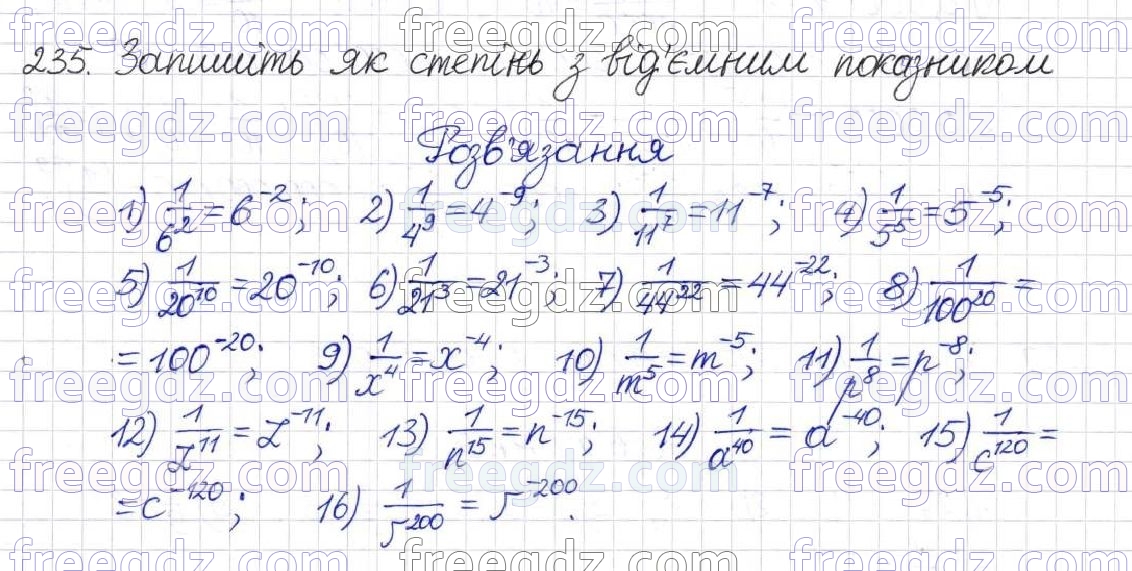 235. Запишіть як степінь з від'ємним показником
Розв'язання
1) 1/6² = 6⁻²; 2) 1/4⁹ = 4⁻⁹; 3) 1/11⁷ = 11⁻⁷; 4) 1/5⁵ = 5⁻⁵;
5) 1/20¹⁰ = 20⁻¹⁰; 6) 1/21³ = 21⁻³; 7) 1/44²² = 44⁻²²; 8) 1/100²⁰ =
= 100⁻²⁰; 9) 1/x⁴ = x⁻⁴; 10) 1/m⁵ = m⁻⁵; 11) 1/p⁸ = p⁻⁸;
12) 1/z¹¹ = z⁻¹¹; 13) 1/n¹⁵ = n⁻¹⁵; 14) 1/a⁴⁰ = a⁻⁴⁰; 15) 1/c¹²⁰ =
= c⁻¹²⁰; 16) 1/5²⁰⁰ = 5⁻²⁰⁰.
freegdz.com